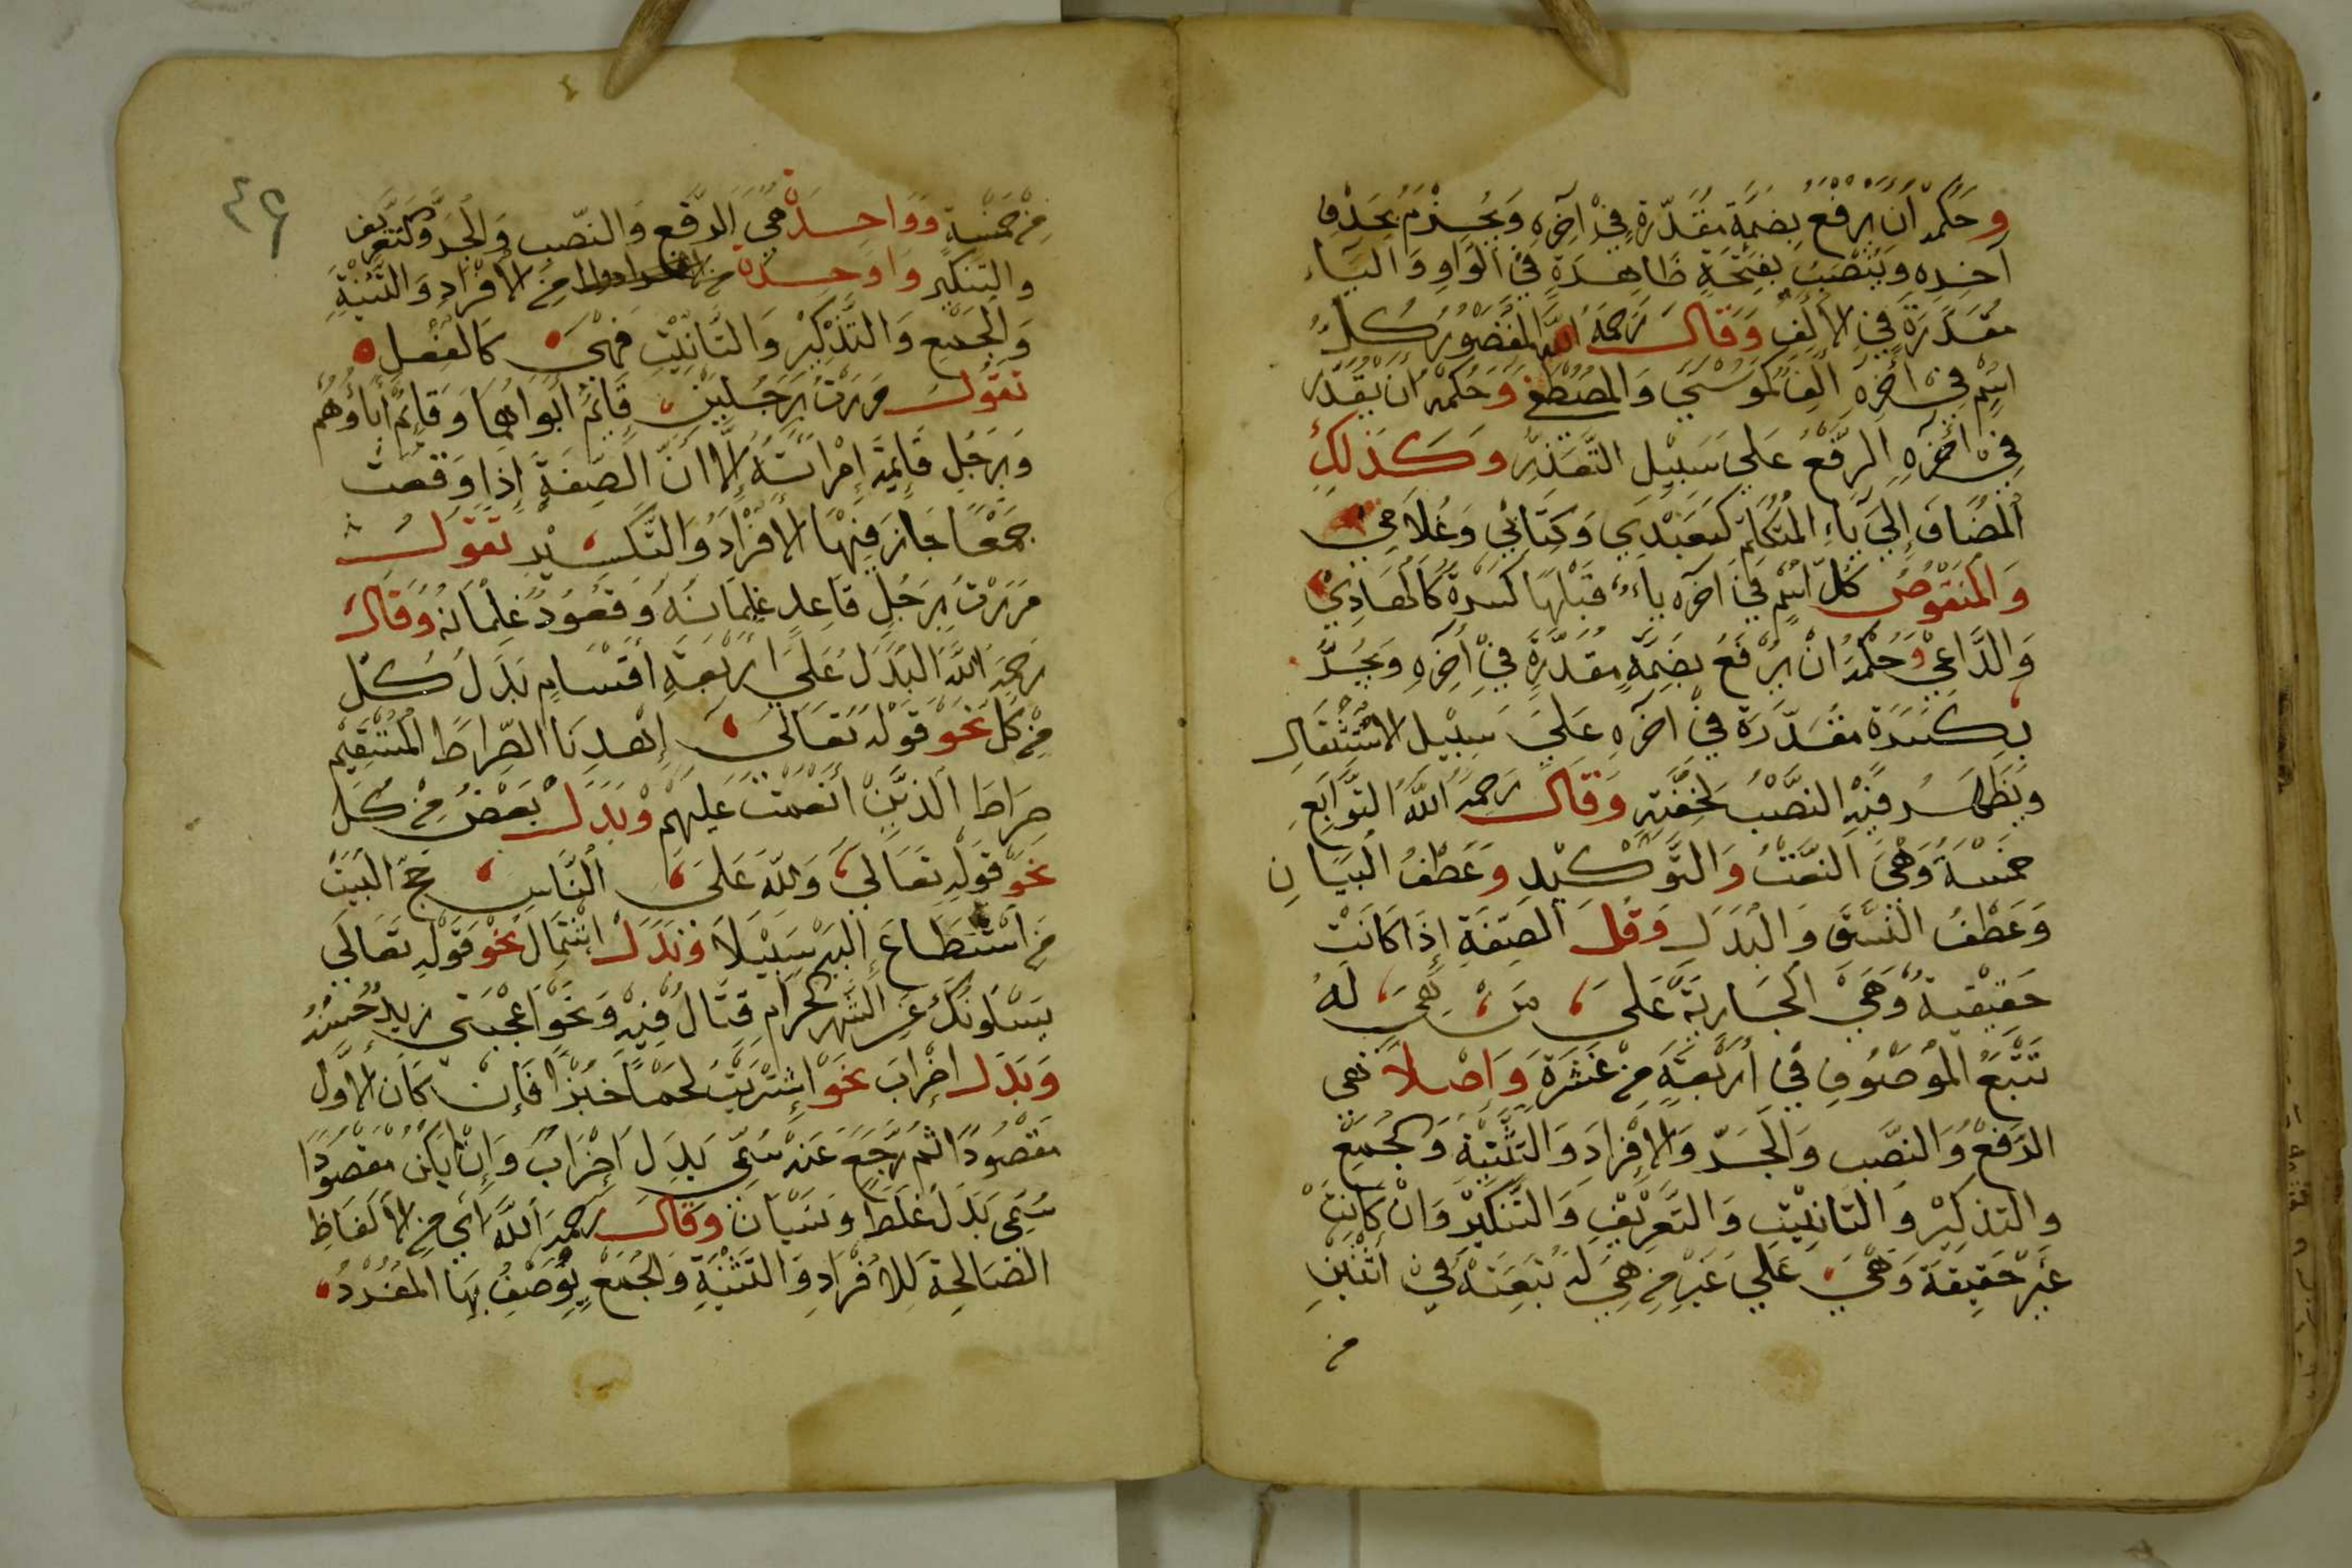 وحكمه أن يرفع بضمة مقدرة في آخره ويجزم بحذف
آخره وينصب بفتحة ظاهرة في الواو والياء
مقدرة في الألف وقال رحمه الله المقصور كل
اسم في أخره ألف كموسى والمصطفى وحكمه أن يقدر
في أخره الرفع على سبيل التعذر وكذلك
المضاف إلى ياء المتكلم كعبدي وكتابي وغلامي
والمنقوص كل اسم في آخره ياء قبلها كسرة كالهادي
والداعي وحكمه أن يرفع بضمة مقدرة في أخره ويجر
بكسرة مقدرة في آخره على سبيل الاستثقال
ويظهر فيه النصب لخفته وقال رحمه الله التوابع
خمسة وهي النعت والتوكيد وعطف البيان
وعطف النسق والبدل وقل الصفة إذا كانت
حقيقية وهي الجارية على من هي له
تتبع الموصوف في أربعة من عشرة واصلا في
الرفع والنصب والجر والإفراد والتثنية والجمع
والتذكير والتانيث والتعريف والتنكير وان كانت
غير حقيقة وهي على غير من هي له تبعته في اثنين
من
٤٦
من خمسة وواحد في الرفع والنصب والجر وكتعريف
والتنكير واوحدة من الافراد والتثنية
والجمع والتذكير والتانيث فهي كالفعل
تقول مررت برجلين قائم أبواهما وقائم أباؤهم
وبرجل قائمة إمراته إلا ان الصفة إذا وقعت
جمعا جاز فيها الافراد والتكسير تقول
مررت برجل قاعد غلمانه وقعود غلمانه وقال
رحمه الله البدل على اربعة أقسام بدل كل
من كل نحو قوله تعالى إهدنا الصراط المستقيم
صراط الذين أنعمت عليهم وبدل بعض من كل
نحو قوله تعالى ولله على الناس حج البيت
من استطاع إليه سبيلا وبدل اشتمال نحو قوله تعالى
يسئلونك عن الشهر الحرام قتال فيه ونحو اعجبني زيد حسنه
وبدل اضراب نحو إشتريت لحما خبزا فإن كان الاول
مقصودا ثم رجع عنه سمي بدل اضراب وإن يكن مقصودا
سمي بدل غلط ونسيان وقال رحمه الله أي من الألفاظ
الصالحة للافراد والتثنية والجمع يوصف بها المفرد